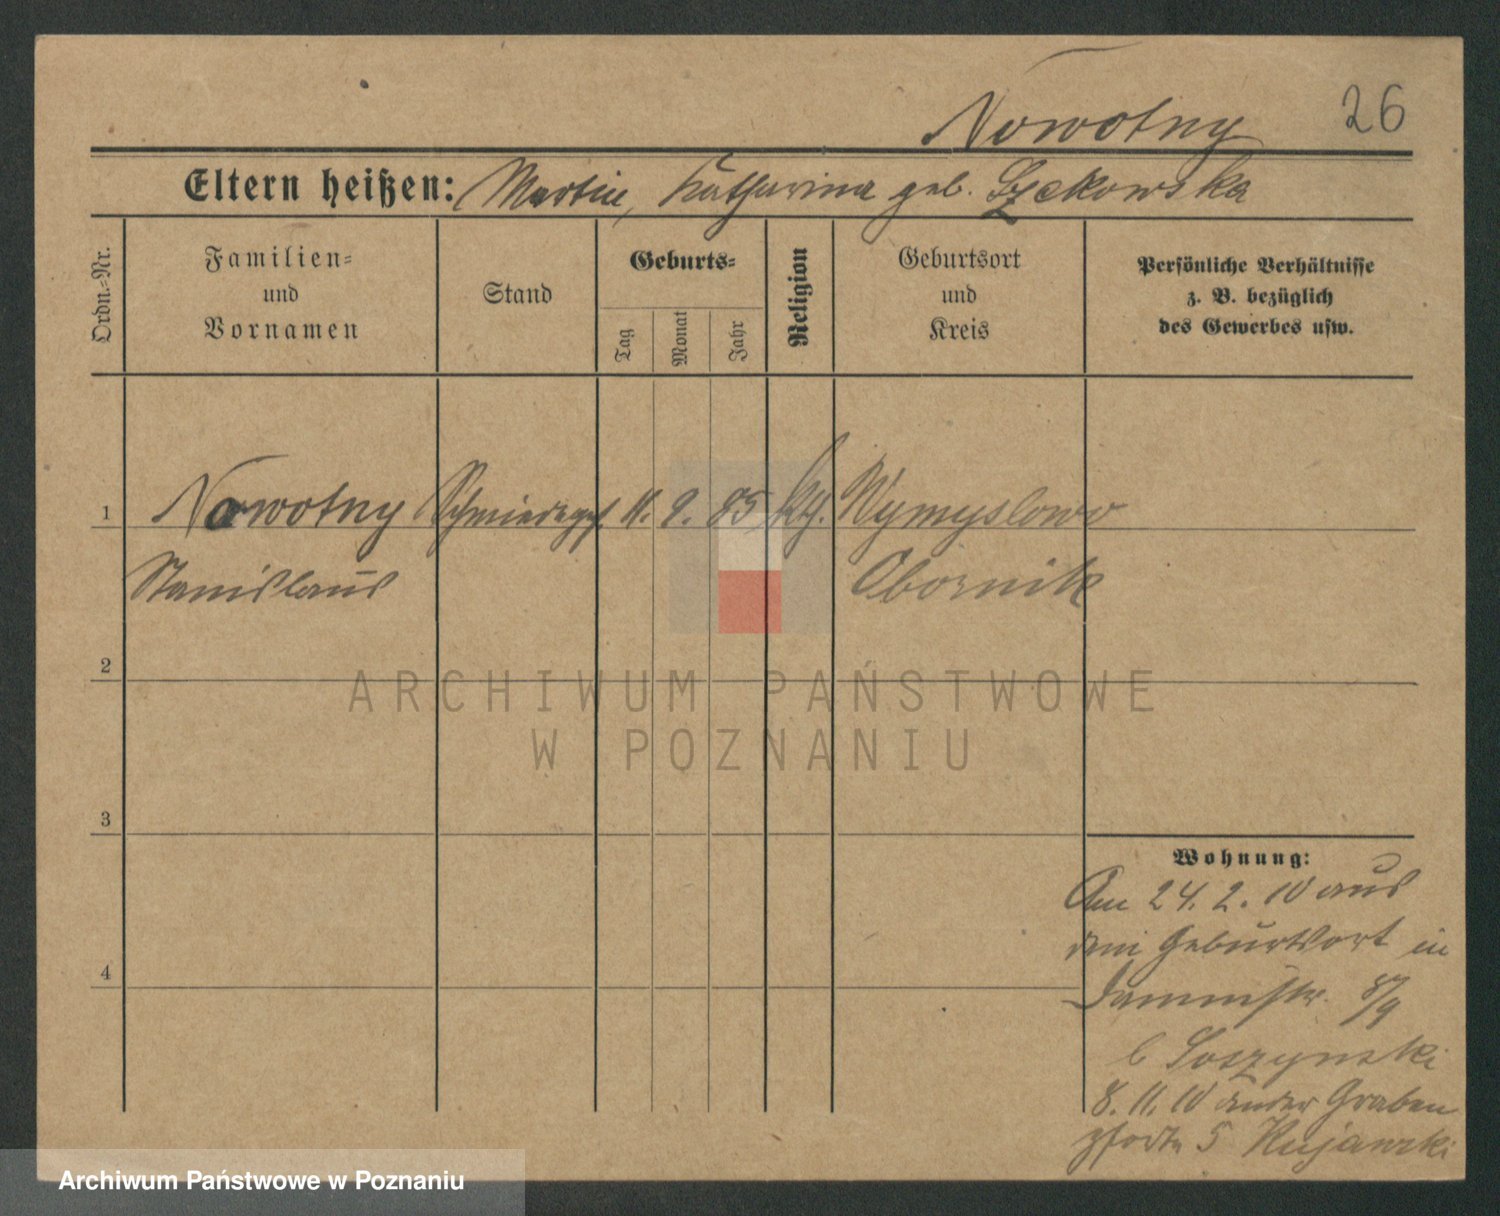 26
Nowotny
Eltern heißen: Martin, Katharina geb. Szekowska
Ordn.-Nr.
Familien-
und
Vornamen
Stand
Geburts-
Tag
Monat
Jahr
Religion
Geburtsort
und
Kreis
Persönliche Verhältnisse
z. B. bezüglich
des Gewerbes usw.
1 Nowotny Schmiedeges. 11. 9. 85 kth. Wymyslowo
Stanislaus Obornik
2
3
4
Wohnung:
Am 24. 2. 10 aus
dem Geburtsort in
Dammstr. 8/9
b Soszynski
8. 11. 10 an der Graben
pforte 5 Kujawski
ARCHIWUM PAŃSTWOWE
W POZNANIU
Archiwum Państwowe w Poznaniu